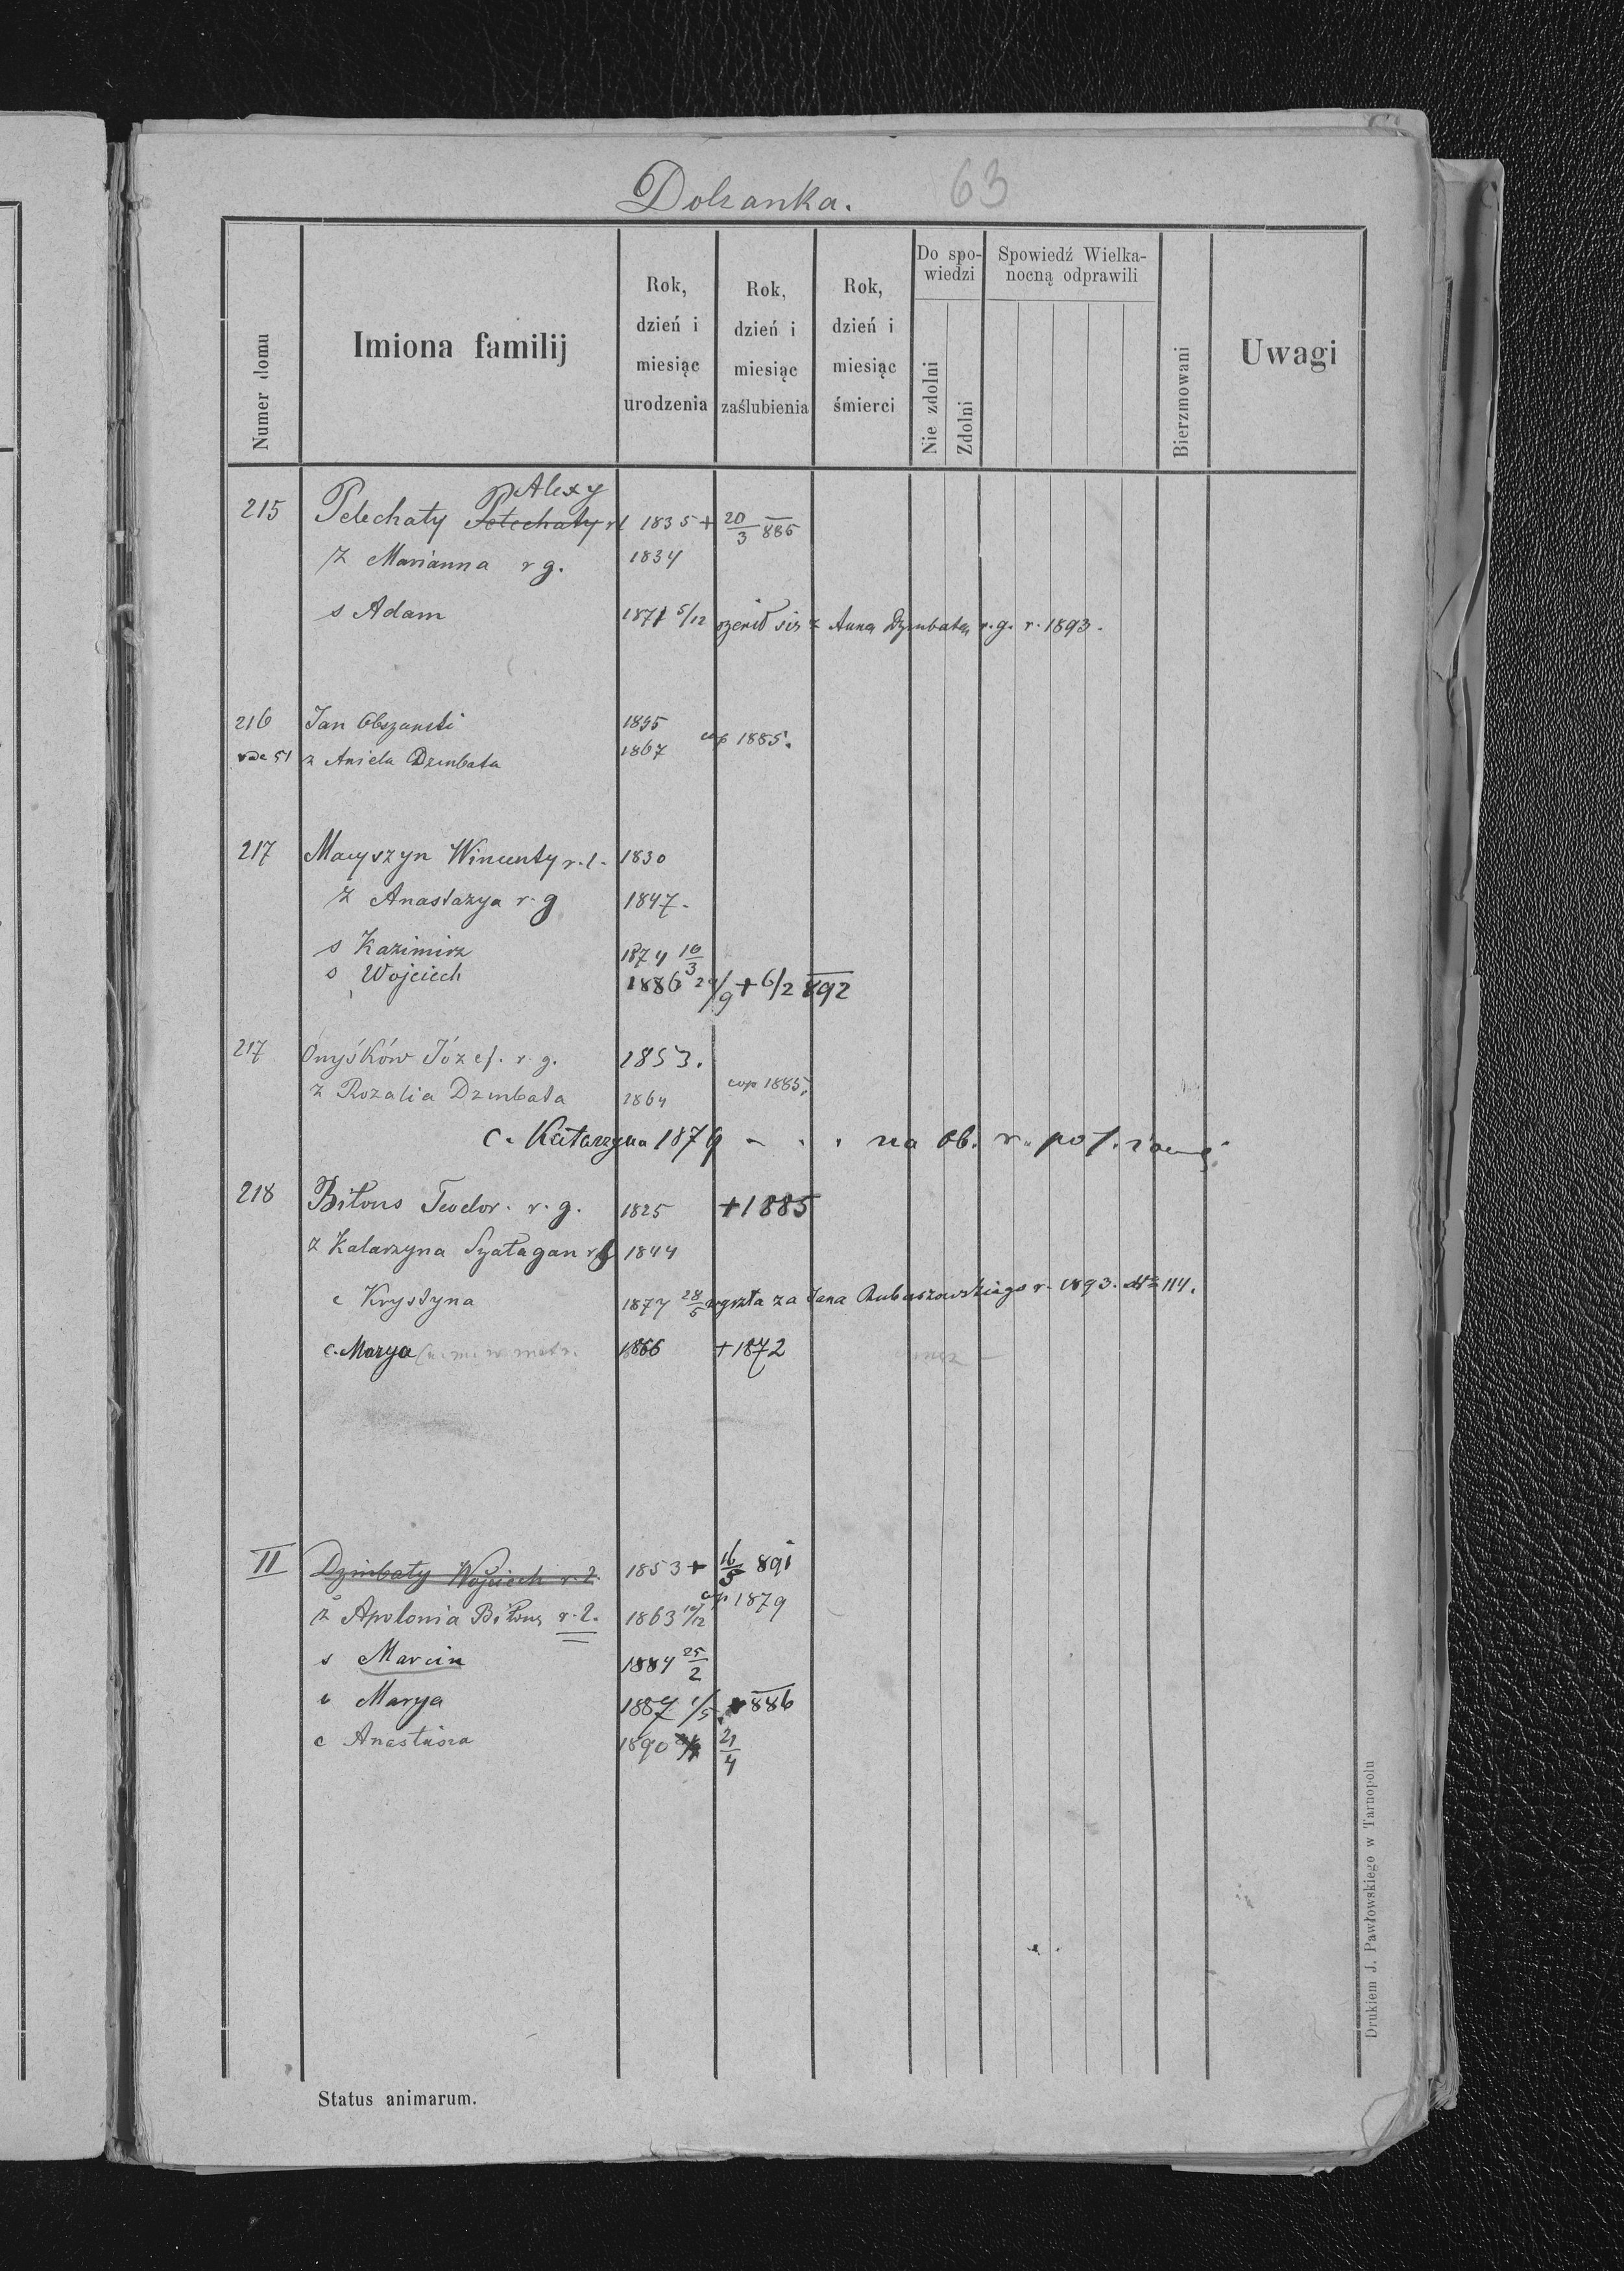 Dolzanka. 63
Numer domu
Imiona familij
Rok, dzień i miesiąc urodzenia
Rok, dzień i miesiąc zaślubienia
Rok, dzień i miesiąc śmierci
Do spo-wiedzi
Nie zdolni
Zdolni
Spowiedź Wielka-nocną odprawili
Bierzmowani
Uwagi
Alexy
215 Pelechaty Pelechaty r l 1835 + 20/3 885
Ż Marianna r g. 1834
s Adam 1871 5/12 ożenił się z Anną Dzimbatą r. g. r. 1893.
216 Jan Obszanski 1855
cop 1885.
vide 51 z Aniela Dzimbata 1867
217 Macyszyn Wincenty r. l. 1830
Ż Anastazya r. g 1847.
s Kazimirz 1874 10/3
s Wojciech 1886 29/9 + 6/2 892
217 Onyśków Józef. r. g. 1853.
cop 1885.
ż Rozalia Dzimbata 1864
C. Katarzyna 1879 - . . na ob. r.
218 Biłous Teodor. r. g. 1825 +1885
Ż Katarzyna Szałagan 1844
c Krystyna 1877 28/5 wyszła za Jana r. 1893. 114.
c. Marya 1866 +1872
II Dzimbaty Wojciech r. ł. 1853 + 16/5 891
cop 1879
ż Apolonia Biłous r. ł. 1863
s Marcin 1884 25/2
c Marya 1887 1/5 886
c Anastasia 1890 21/4
Status animarum.
Drukiem J. Pawłowskiego w Tarnopolu